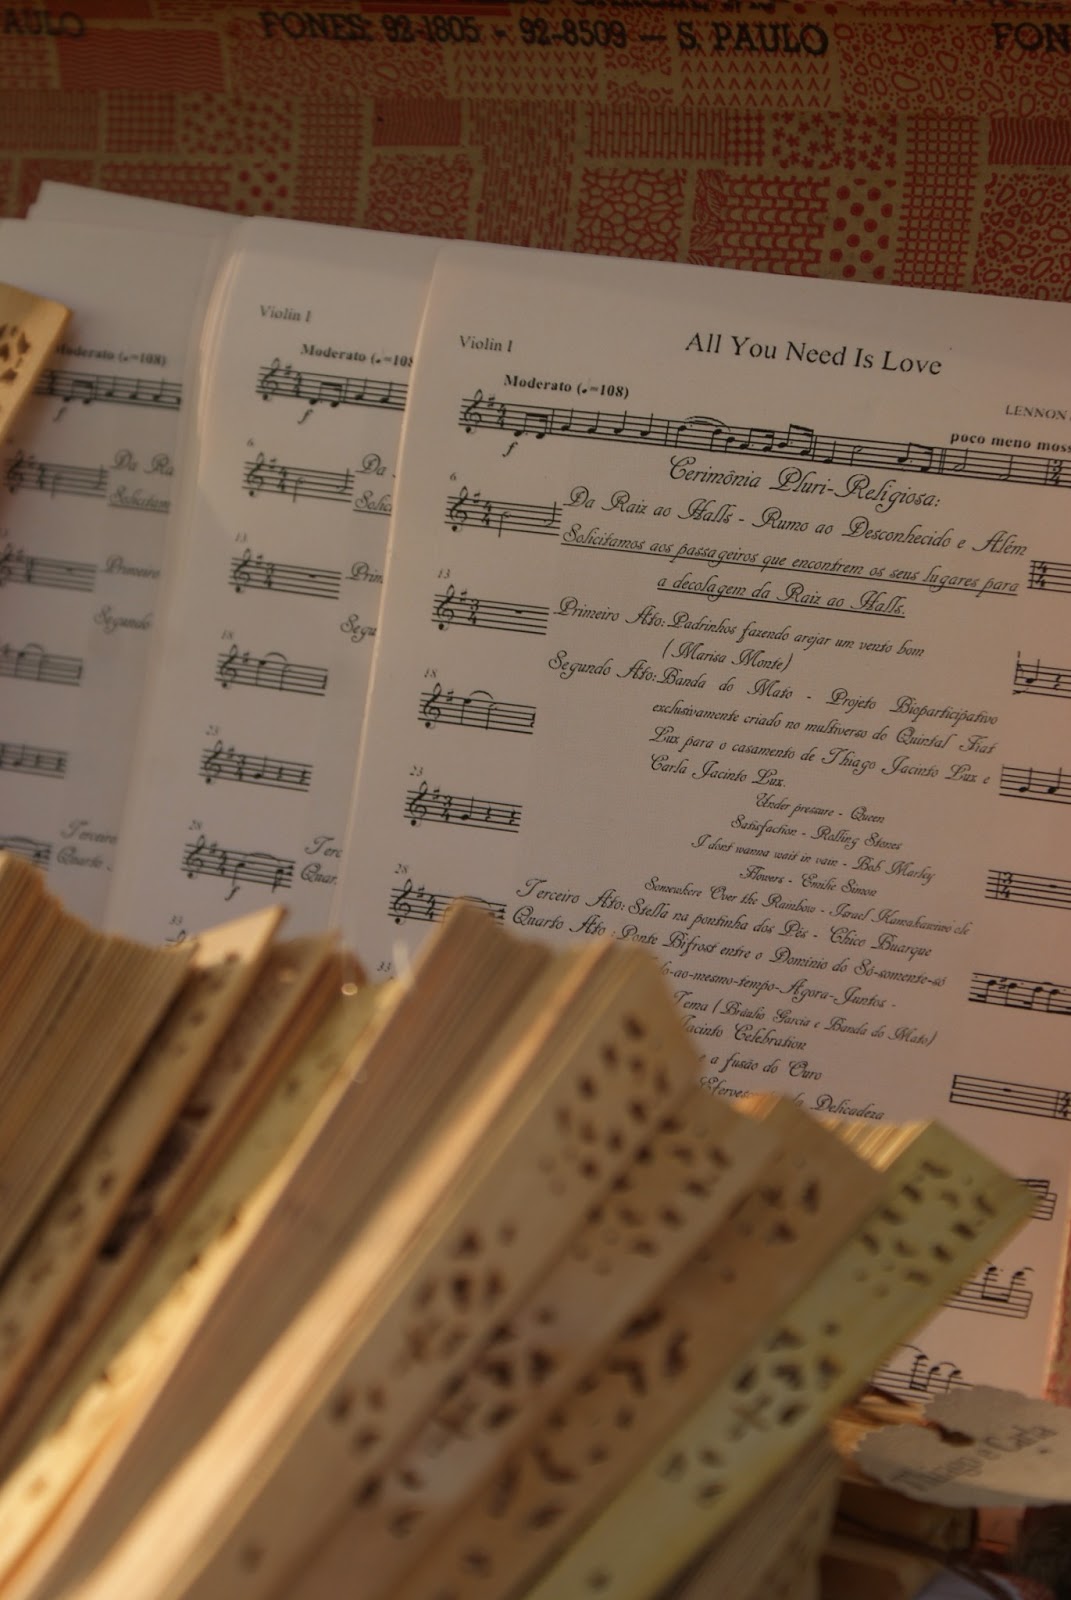 AULO
FONES: 92-1805 - 92-8509 — S. PAULO
FON
Moderato (♩=108)
f
Da Ra
Solicitam
Primeiro
Segundo
Terceiro
Quarto
Violin I
Moderato (♩=108
f
6
Da
Solic
13
Prim
Segu
18
23
28
f
Terc
Quar
33
Violin I
All You Need Is Love
LENNON
Moderato (♩=108)
poco meno moss
f
Cerimônia Pluri-Religiosa:
6
Da Raiz ao Halls - Rumo ao Desconhecido e Além
Solicitamos aos passageiros que encontrem os seus lugares para
a decolagem da Raiz ao Halls.
13
Primeiro Ato: Padrinhos fazendo arejar um vento bom
(Marisa Monte)
18
Segundo Ato: Banda do Mato - Projeto Bioparticipativo
exclusivamente criado no multiverso do Quintal Fiat
Lux para o casamento de Thiago Jacinto Lux e
Carla Jacinto Lux.
23
Under pressure - Queen
Satisfaction - Rolling Stones
I dont wanna wait in vain - Bob Marley
Flowers - Emilie Simon
28
Somewhere Over the Rainbow - Israel Kamakawiwo'ole
Terceiro Ato: Stella na pontinha dos Pés - Chico Buarque
Quarto Ato: Ponte Bifrost entre o Domínio do Só-somente-só
do-ao-mesmo-tempo-Agora-Juntos -
33
Tema (Bráulio Garcia e Banda do Mato)
Jacinto Celebration
e a fusão do Ouro
Delicadeza
Thiago e Carla